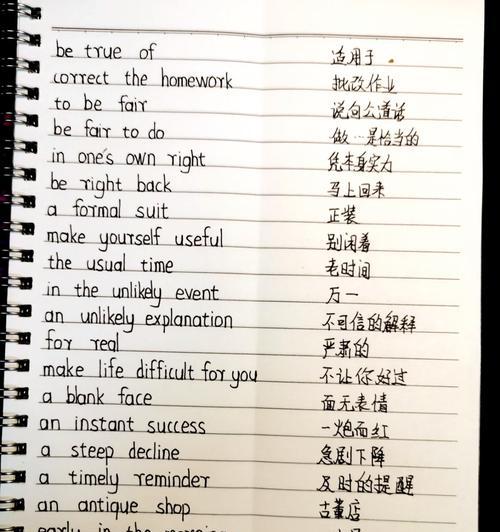 be true of 适用于
correct the homework 批改作业
to be fair 说句公道话
be fair to do 做…是恰当的
in one's own right 凭本身实力
be right back 马上回来
a formal suit 正装
make yourself useful 别闲着
the usual time 老时间
in the unlikely event 万一
an unlikely explanation 不可信的解释
for real 严肃的
make life difficult for you 不让你好过
a blank face 面无表情
an instant success 一炮而红
a steep decline 急剧下降
a timely reminder 及时的提醒
an antique shop 古董店
early in the